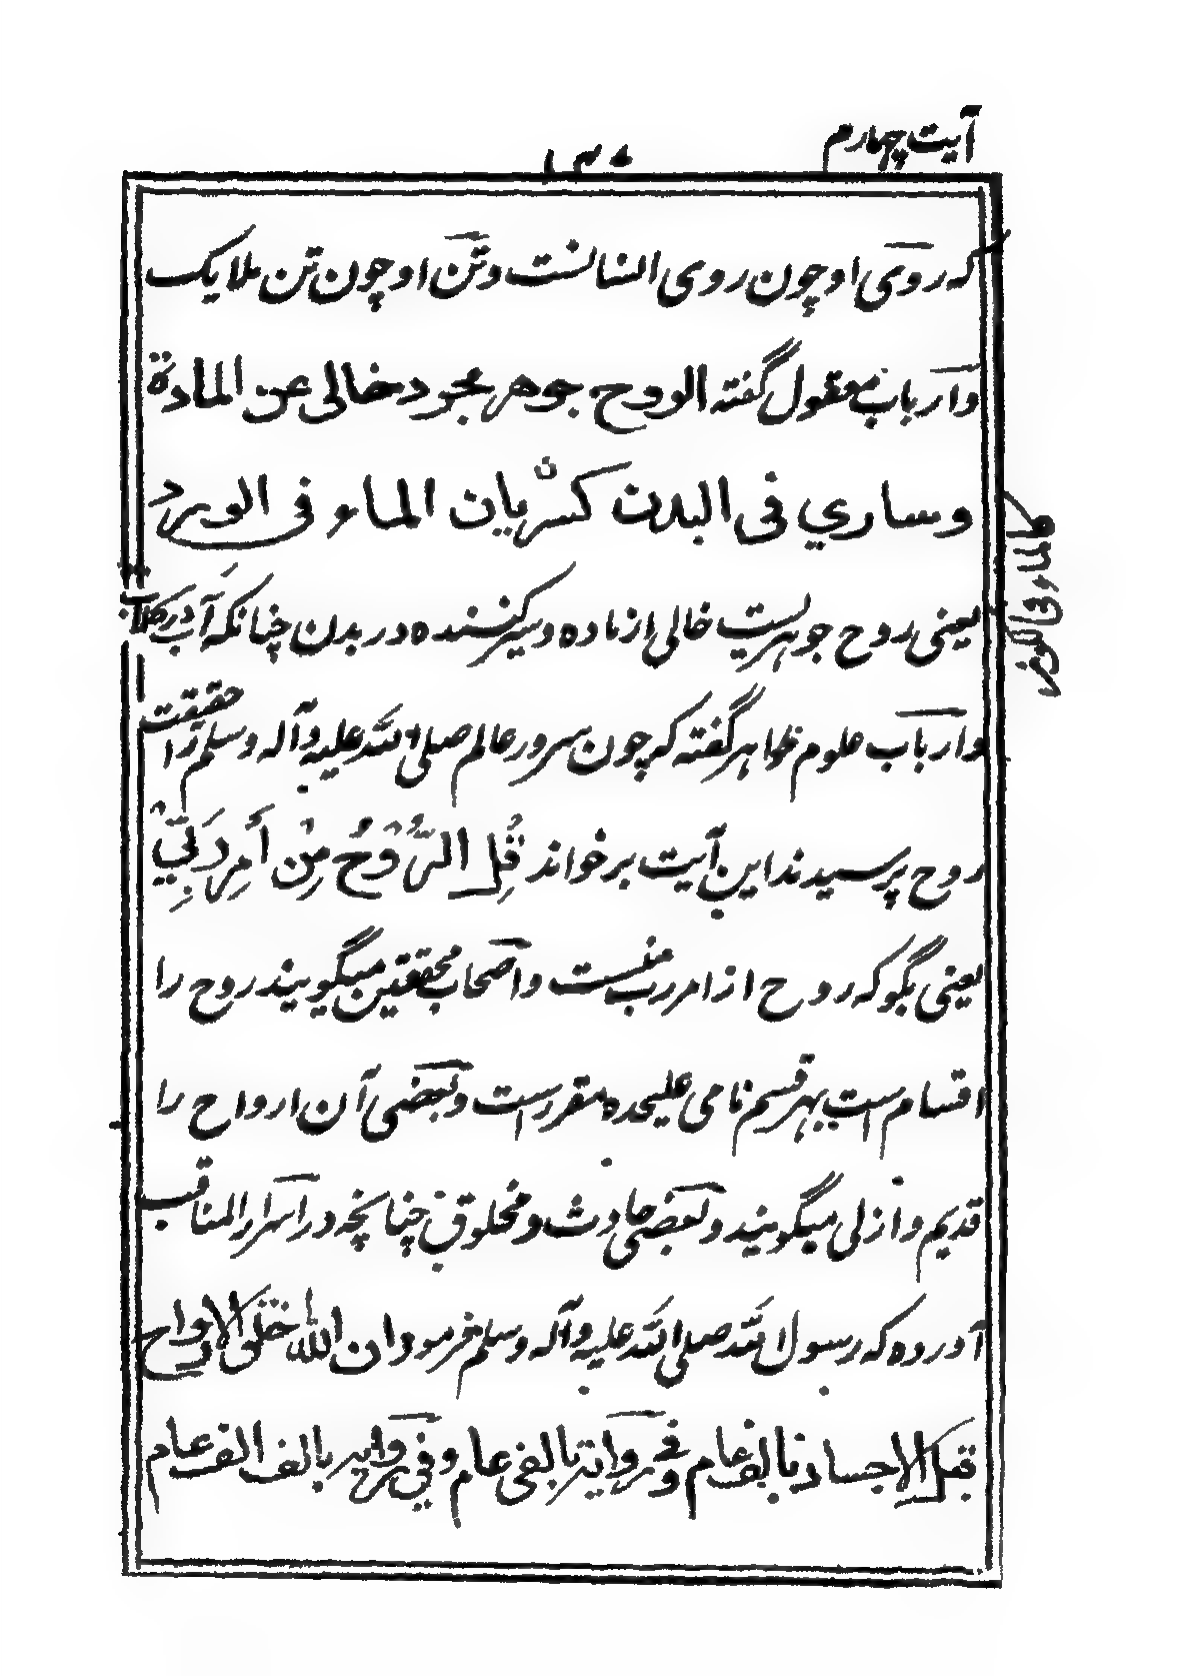 آیت چهارم
۱۳۷
که روی او چون روی انسانست وتن او چون تن ملایک
وارباب معقول گفته الروح جوهر مجرد خالی عن المادة
وساري فی البدن کسریان الماء فی الورد
یعنی روح جوهریست خالی از ماده وسیر کننده در بدن چنانکه آب در گلاب
وارباب علوم ظواهر گفته که چون سرور عالم صلی الله علیه وآله وسلم را حقیقت
روح پرسیدند این آیت برخواند قُلِ الرُّوْحُ مِنْ أَمْرِ رَبِّيْ
یعنی بگو که روح از امر رب منست واصحاب محققین میگویند روح را
اقسام است بهر قسم نامی علیحده مقررست وبعضی آن ارواح را
قدیم وازلی میگویند وبعضی حادث ومخلوق چنانچه در اسرار المناقب
آورده که رسول الله صلی الله علیه وآله وسلم فرمود ان الله خلق الارواح
قبل الاجساد بالف عام وفی روایة بالفی عام وفي روایة بالف الف عام